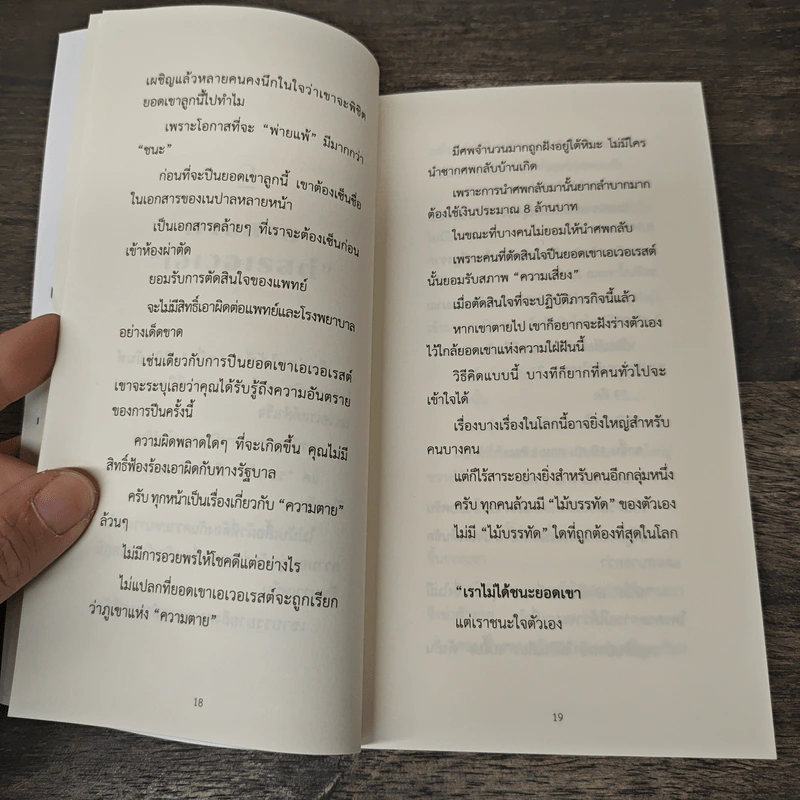 เผชิญแล้วหลายคนคงนึกในใจว่าเขาจะพิชิต
ยอดเขาลูกนี้ไปทำไม
เพราะโอกาสที่จะ “พ่ายแพ้” มีมากกว่า
“ชนะ”
ก่อนที่จะปีนยอดเขาลูกนี้ เขาต้องเซ็นชื่อ
ในเอกสารของเนปาลหลายหน้า
เป็นเอกสารคล้ายๆ ที่เราจะต้องเซ็นก่อน
เข้าห้องผ่าตัด
ยอมรับการตัดสินใจของแพทย์
จะไม่มีสิทธิ์เอาผิดต่อแพทย์และโรงพยาบาล
อย่างเด็ดขาด
เช่นเดียวกับการปีนยอดเขาเอเวอเรสต์
เขาจะระบุเลยว่าคุณได้รับรู้ถึงความอันตราย
ของการปีนครั้งนี้
ความผิดพลาดใดๆ ที่จะเกิดขึ้น คุณไม่มี
สิทธิ์ฟ้องร้องเอาผิดกับทางรัฐบาล
ครับ ทุกหน้าเป็นเรื่องเกี่ยวกับ “ความตาย”
ล้วนๆ
ไม่มีการอวยพรให้โชคดีแต่อย่างไร
ไม่แปลกที่ยอดเขาเอเวอเรสต์จะถูกเรียก
ว่าภูเขาแห่ง “ความตาย”
18
มีศพจำนวนมากถูกฝังอยู่ใต้หิมะ ไม่มีใคร
นำซากศพกลับบ้านเกิด
เพราะการนำศพกลับมานั้นยากลำบากมาก
ต้องใช้เงินประมาณ 8 ล้านบาท
ในขณะที่บางคนไม่ยอมให้นำศพกลับ
เพราะคนที่ตัดสินใจปีนยอดเขาเอเวอเรสต์
นั้นยอมรับสภาพ “ความเสี่ยง”
เมื่อตัดสินใจที่จะปฏิบัติภารกิจนี้แล้ว
หากเขาตายไป เขาก็อยากจะฝังร่างตัวเอง
ไว้ใกล้ยอดเขาแห่งความใฝ่ฝันนี้
วิธีคิดแบบนี้ บางทีก็ยากที่คนทั่วไปจะ
เข้าใจได้
เรื่องบางเรื่องในโลกนี้อาจยิ่งใหญ่สำหรับ
คนบางคน
แต่ก็ไร้สาระอย่างยิ่งสำหรับคนอีกกลุ่มหนึ่ง
ครับ ทุกคนล้วนมี “ไม้บรรทัด” ของตัวเอง
ไม่มี “ไม้บรรทัด” ใดที่ถูกต้องที่สุดในโลก
“เราไม่ได้ชนะยอดเขา
แต่เราชนะใจตัวเอง
19